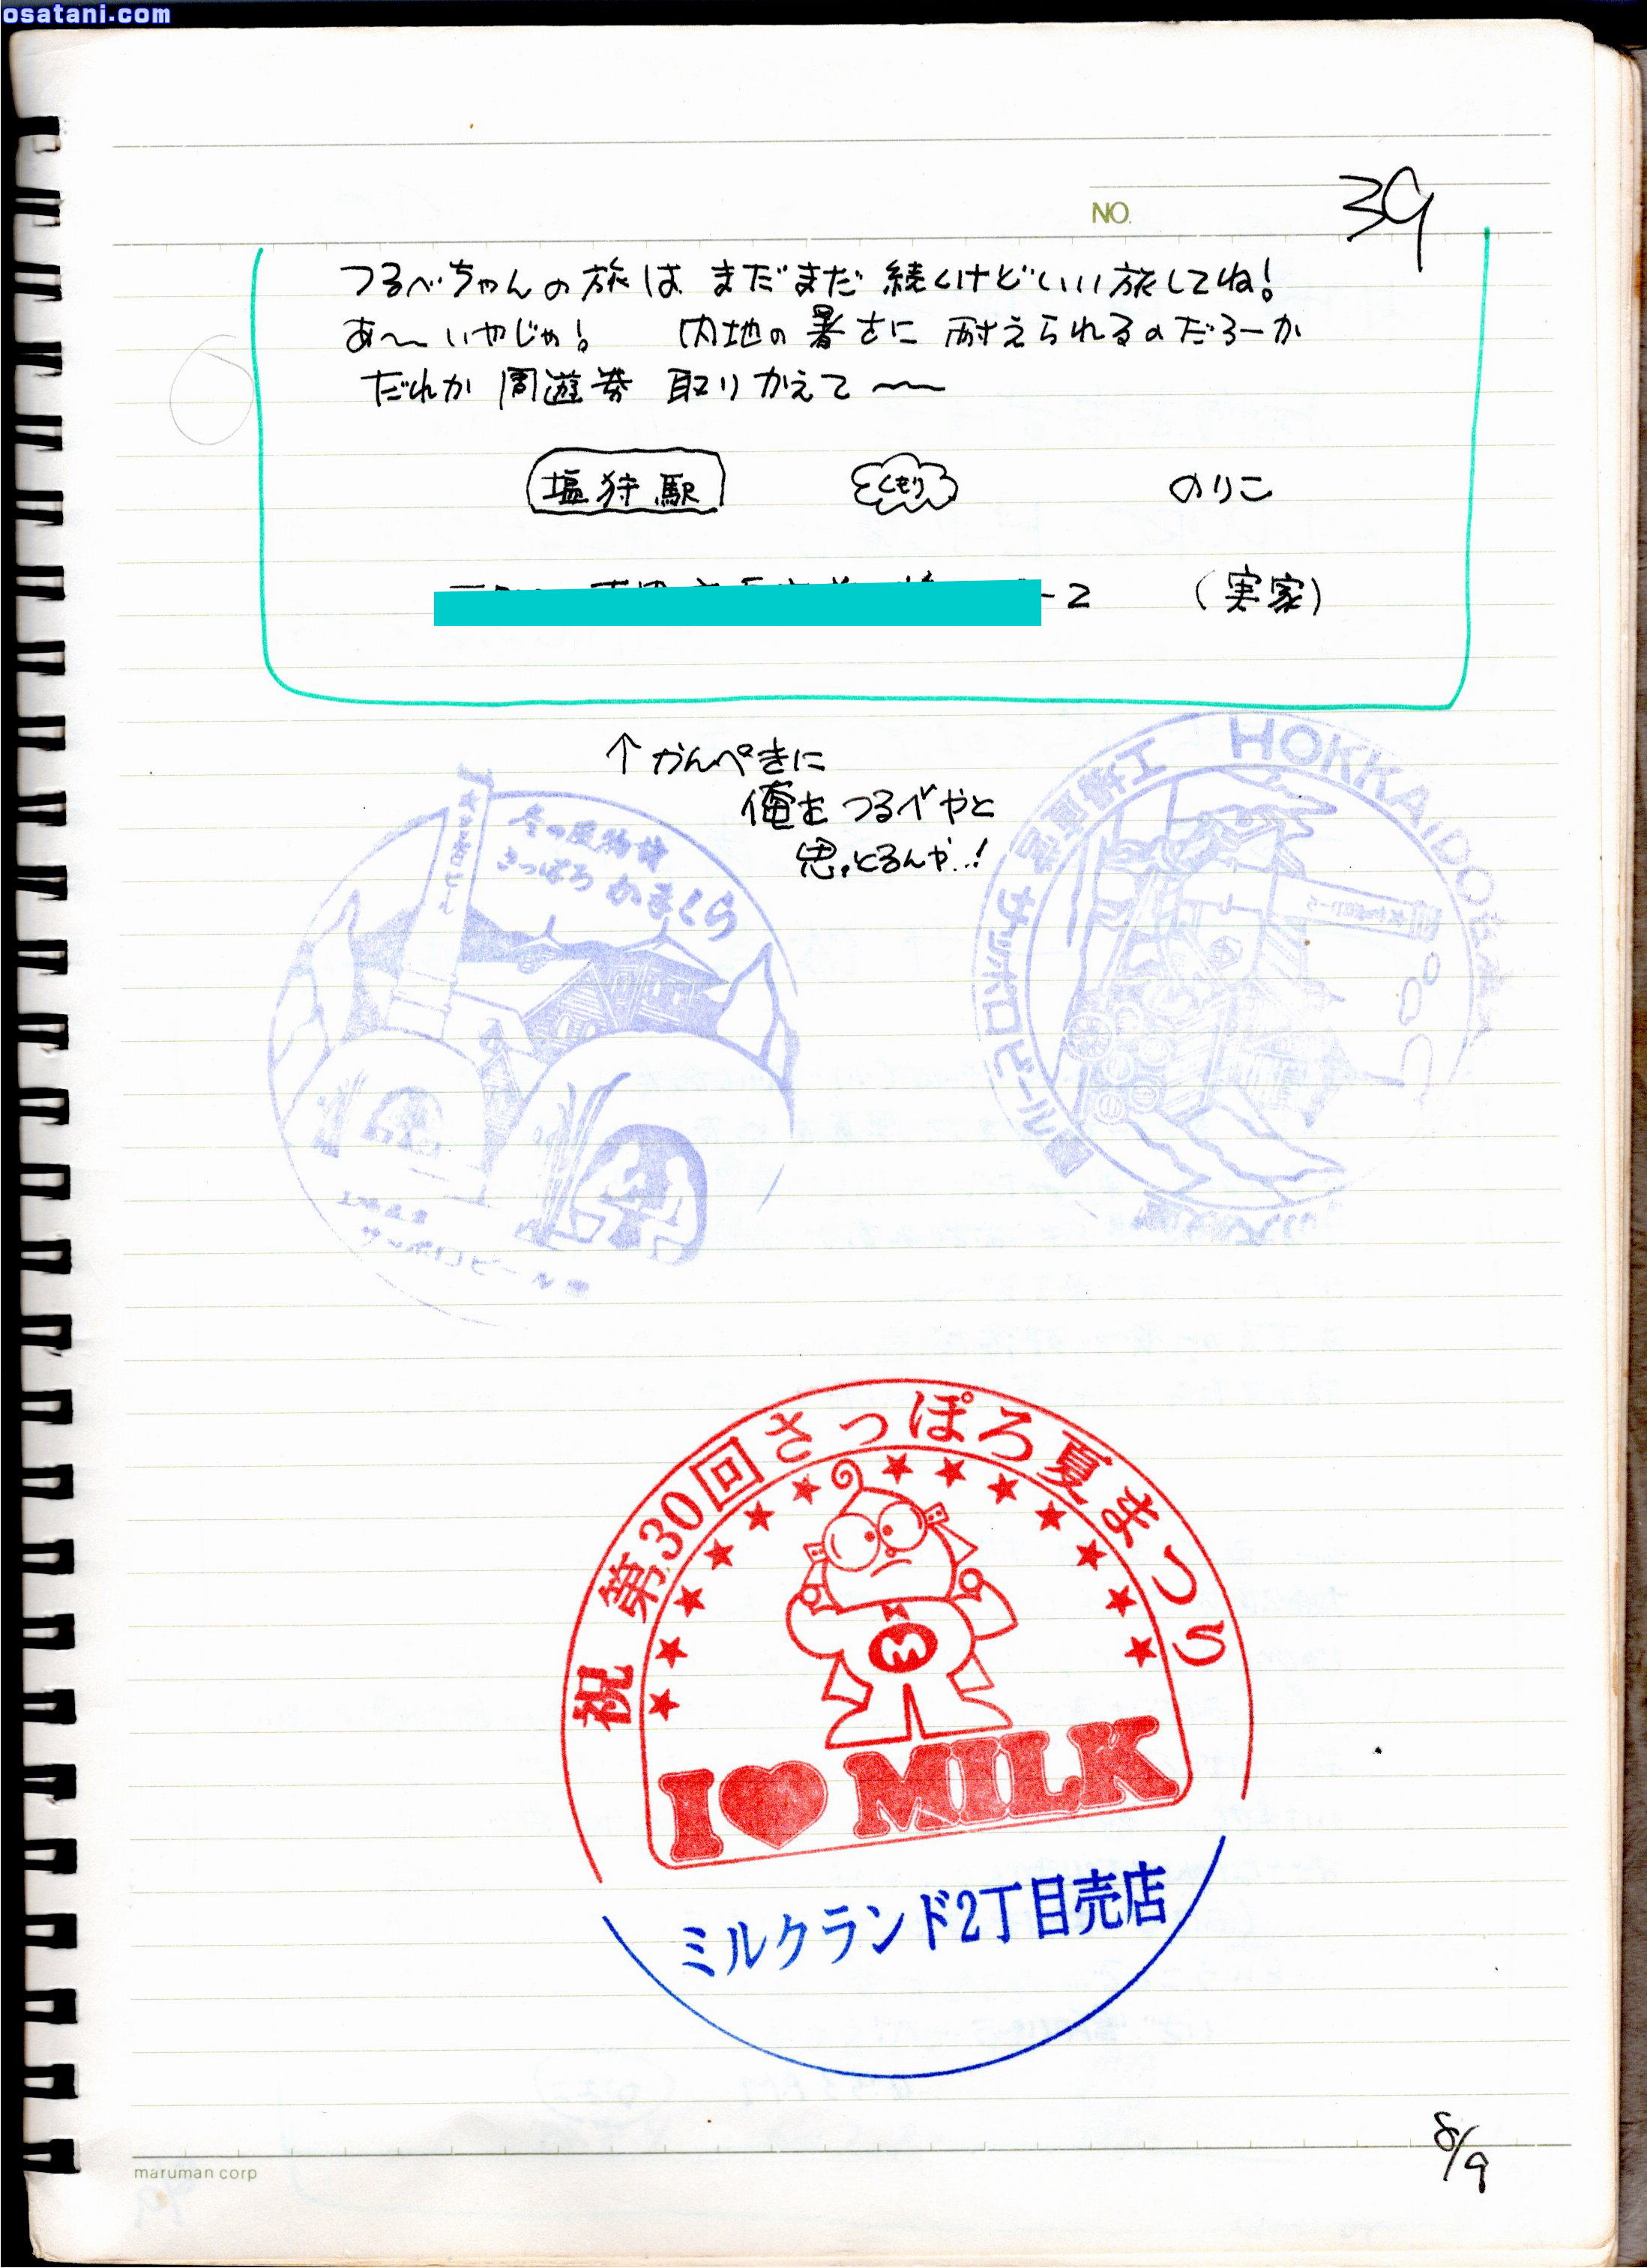 osatani.com
NO.
39
つるべちゃんの旅は まだまだ 続くけどいい旅してね!
あ〜いやじゃ! 内地の暑さに 耐えられるのだろーか
だれか 周遊券 取りかえて〜
塩狩駅 くもり のりこ
-2 (実家)
↑かんぺきに
俺をつるべやと
思っとるんや..!
冬の風物詩
さっぽろ かまくら
サッポロビール
HOKKAIDO
サッポロビール
祝 第30回さっぽろ夏まつり
M
I♥MILK
ミルクランド2丁目売店
8/9
maruman corp